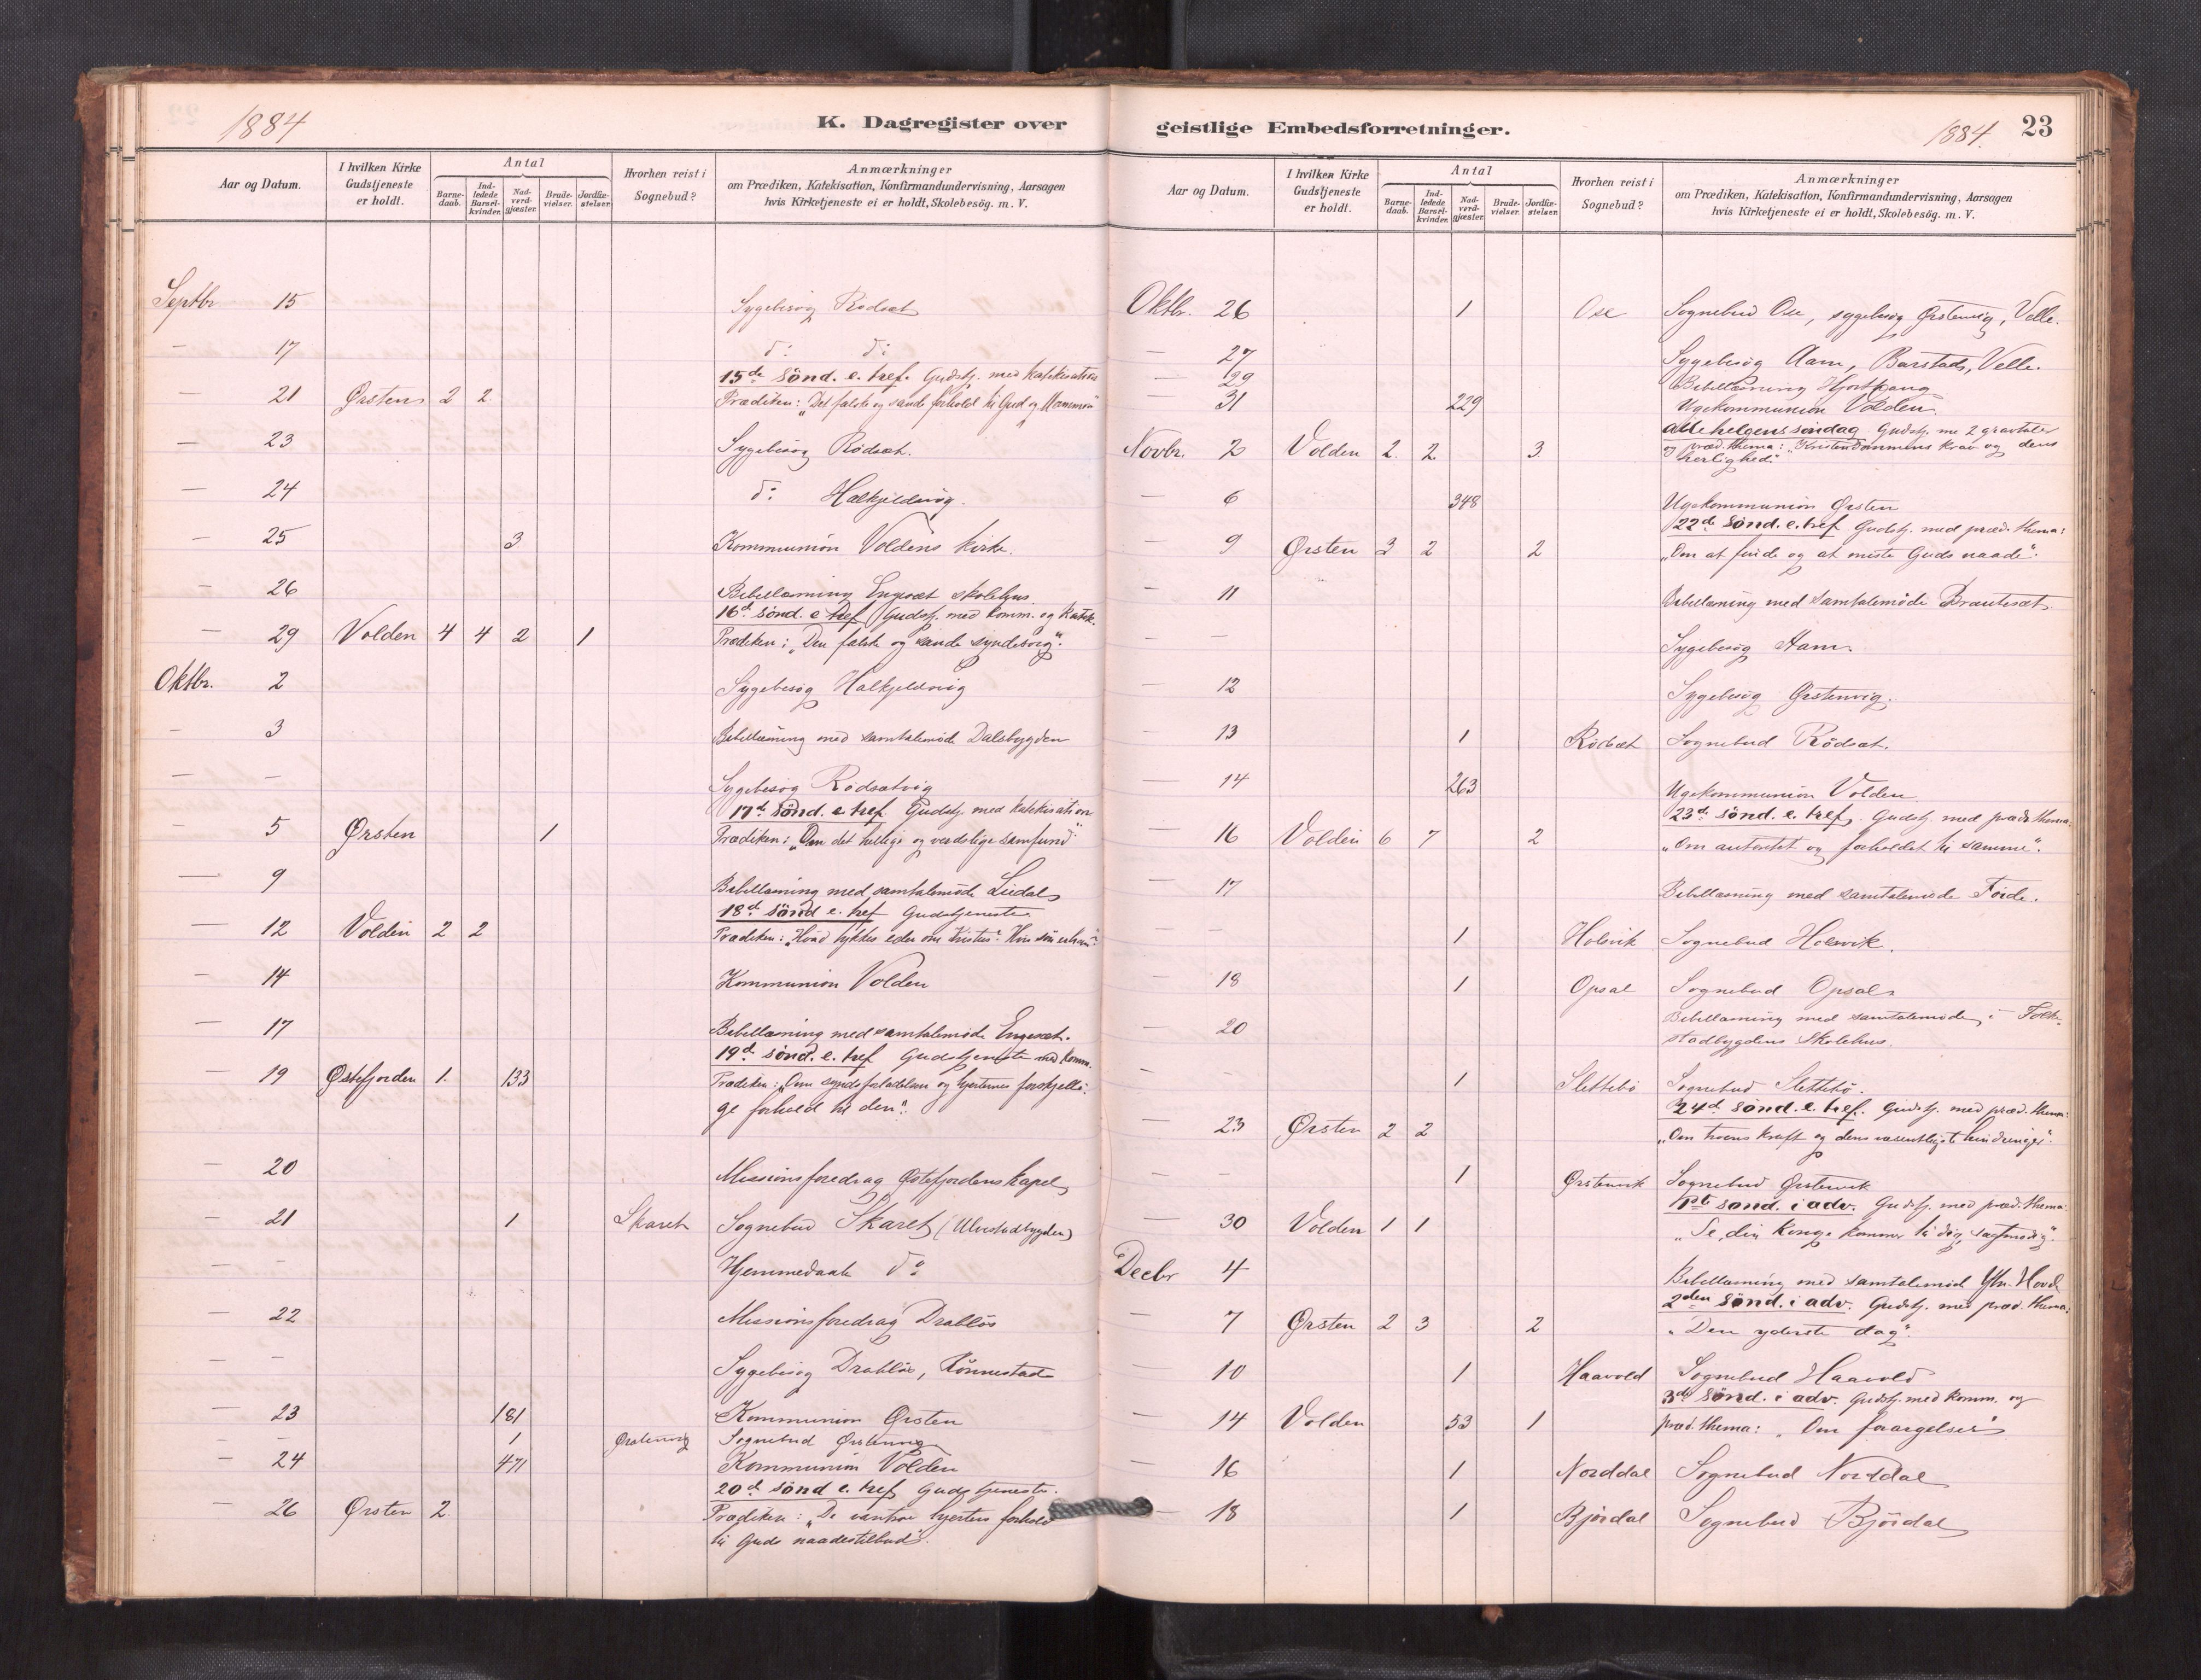 1884
K. Dagregister over
Aar og Datum.
I hvilken Kirke Gudstjeneste er holdt.
Antal
Barne-daab.
Ind-ledede Barsel-kvinder.
Nad-verd-gjæster.
Brude-vielser.
Jordfæ-stelser.
Hvorhen reist i Sognebud?
Anmærkninger
om Prædiken, Katekisation, Konfirmandundervisning, Aarsagen
hvis Kirketjeneste ei er holdt, Skolebesög. m. V.
Septbr 15 Sygebesøg Rødsæt
— 17 do do
15de sönd. e. tref. Gudstj. med katekisation
— 21 Ørsten 2 2 Prædiken: „Det falske og sande forhold til Gud og Mammon"
— 23 Sygebesøg Rødsæt.
— 24 do Halkjeldsvig.
— 25 3 Kommunion Voldens kirke.
— 26 Bibellæsning Engeset skolehus
16de sönd. e. tref. Gudstj. med komm. og katek.
— 29 Volden 4 4 2 1 Prædiken: „Den falske og sande syndesorg".
Oktbr. 2 Sygebesøg Halkjeldsvig
— 3 Bibellæsning med samtalemøde Dalsbygden
— — Sygebesøg Rødsætvig
17de sönd. e. tref. Gudstj. med katekisation
— 5 Ørsten 1 Prædiken: „Om det hellige og verdslige samfund"
— 9 Bibellæsning med samtalemøde Liedal
18de sönd e. tref Gudstjeneste
— 12 Volden 2 2 Prædiken: „Hvad tykkes eder om Kristus? Hvis søn er han?"
— 14 Kommunion Volden
— 17 Bibellæsning med samtalemøde Engeset.
19de sönd. e. tref Gudstjeneste med komm.
— 19 Østefjorden 1. 133 Prædiken: „Om syndsforladelsen og hjerternes forskjelli-
ge forhold til den".
— 20 Missionsforedrag Østefjordens kapel
— 21 1 Skaret Sognebud Skaret (Ulvestadbygden)
— — Hjemmedaab do
— 22 Missionsforedrag Drabløs
— — Sygebesøg Drabløs, Rønnestad
— 23 181 Kommunion Ørsten
— — 1 Ørstenvig Sognebud Ørstenvig
— 24 471 Kommunion Volden
20de sönd e. tref Gudstjeneste.
— 26 Ørsten 2. Prædiken: „De vantro hjerters forhold
til Guds naadestilbud".
geistlige Embedsforretninger.
1884. 23
Aar og Datum.
I hvilken Kirke Gudstjeneste er holdt.
Antal
Barne-daab.
Ind-ledede Barsel-kvinder.
Nad-verd-gjæster.
Brude-vielser.
Jordfæ-stelser.
Hvorhen reist i Sognebud?
Anmærkninger
om Prædiken, Katekisation, Konfirmandundervisning, Aarsagen
hvis Kirketjeneste ei er holdt, Skolebesög. m. V.
Oktbr. 26 1 Ose Sognebud Ose, sygebesøg Ørstenvig, Velle.
— 27 Sygebesøg Aam, Barstad, Velle.
— 29 Bibellæsning Hjortvang
— 31 229 Ugekommunion Volden.
Allehelgenssøndag Gudstj. me 2 gravtaler
Novbr. 2 Volden 2. 2 3 og præd. thema: „Kristendommens krav og dens
herlighed."
— 6 348 Ugekommunion Ørsten
22de sönd. e. tref Gudstj. med præd. thema:
— 9 Ørsten 3 2 2 „Om at finde og at miste Guds naade".
— 11 Bibellæsning med samtalemøde Brautesæt
— — Sygebesøg Aam.
— 12 Sygebesøg Ørstenvig.
— 13 1 Rødsæt Sognebud Rødsæt.
— 14 263 Ugekommunion Volden
23de sönd. e. tref. Gudstj. med præd. thema:
— 16 Volden 6 7 2 „Om autoritet og forholdet til samme".
— 17 Bibellæsning med samtalemøde Førde.
— — 1 Holsvik Sognebud Holsvik.
— 18 1 Opsal Sognebud Opsal
— 20 Bibellæsning med samtalemøde i Folk-
stadbygdens Skolehus.
— — 1 Slettebø Sognebud Slettebø.
24de sönd. e. tref. Gudstj. med præd. thema:
— 23 Ørsten 2 2 „Om troens kraft og dens væsentligste hindringer".
— — 1 Ørstenvik Sognebud Ørstenvik
1ste sønd. i adv. Gudstj. med præd. thema:
— 30 Volden 1 1 „Se, din konge kommer til dig, sagtmodig".
Decbr 4 Bibellæsning med samtalemøde Ytr. Hovd
2den sönd. i adv. Gudstj. med præd. thema:
— 7 Ørsten 2 3 2 „Den yderste dag".
— 10 1 Haavold Sognebud Haavold
3de sönd. i adv. Gudstj. med komm. og
— 14 Volden 53 1 præd. thema: „Om forargelser"
— 16 1 Norddal Sognebud Norddal
— 18 1 Bjørdal Sognebud Bjørdal